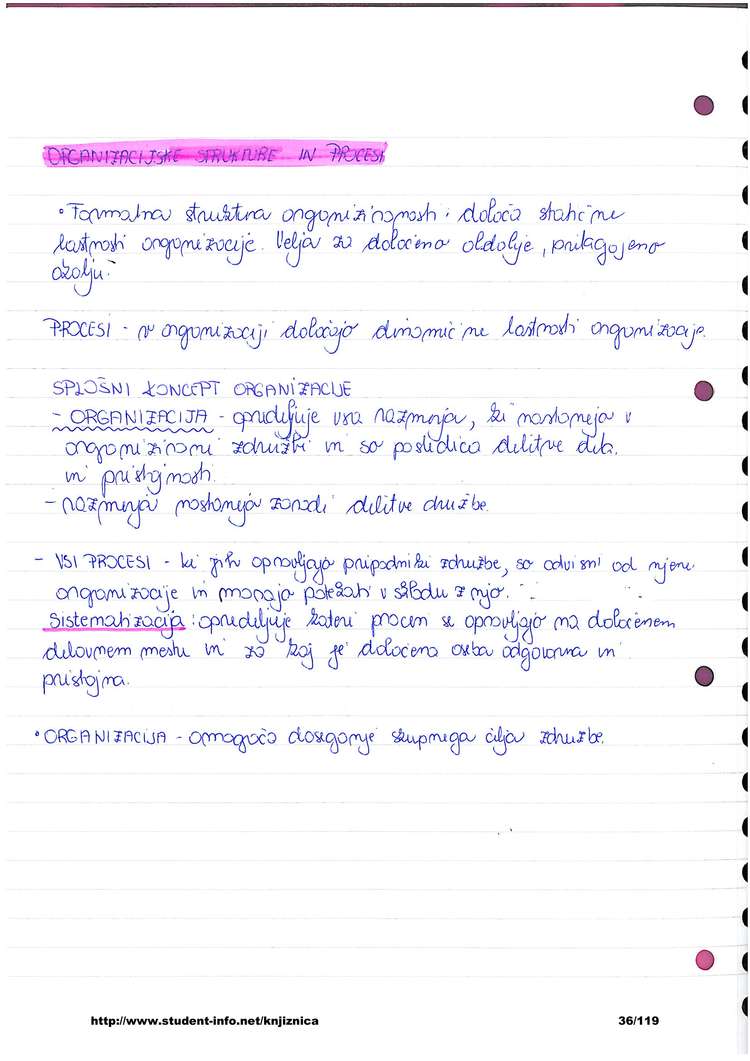 ORGANIZACIJSKE STRUKTURE IN PROCESI
• Formalna struktura organiziranosti: določa statične
lastnosti organizacije. Velja za določeno obdobje, prilagojeno
okolju.
PROCESI - v organizaciji določajo dinamične lastnosti organizacije.
SPLOŠNI KONCEPT ORGANIZACIJE
- ORGANIZACIJA - opredeljuje vsa razmerja, ki nastanejo v
organizirani združbi in so posledica delitve dela.
in pristojnosti.
- razmerja nastanejo zaradi delitve družbe.
- VSI PROCESI - ki jih opravljajo pripadniki združbe, so odvisni od njene
organizacije in morajo potekati v skladu z njo.
Sistematizacija: opredeljuje kateri procesi se opravljajo na določenem
delovnem mestu in za kaj je določena oseba odgovorna in
pristojna.
• ORGANIZACIJA - omogoča doseganje skupnega cilja združbe.
http://www.student-info.net/knjiznica 36/119